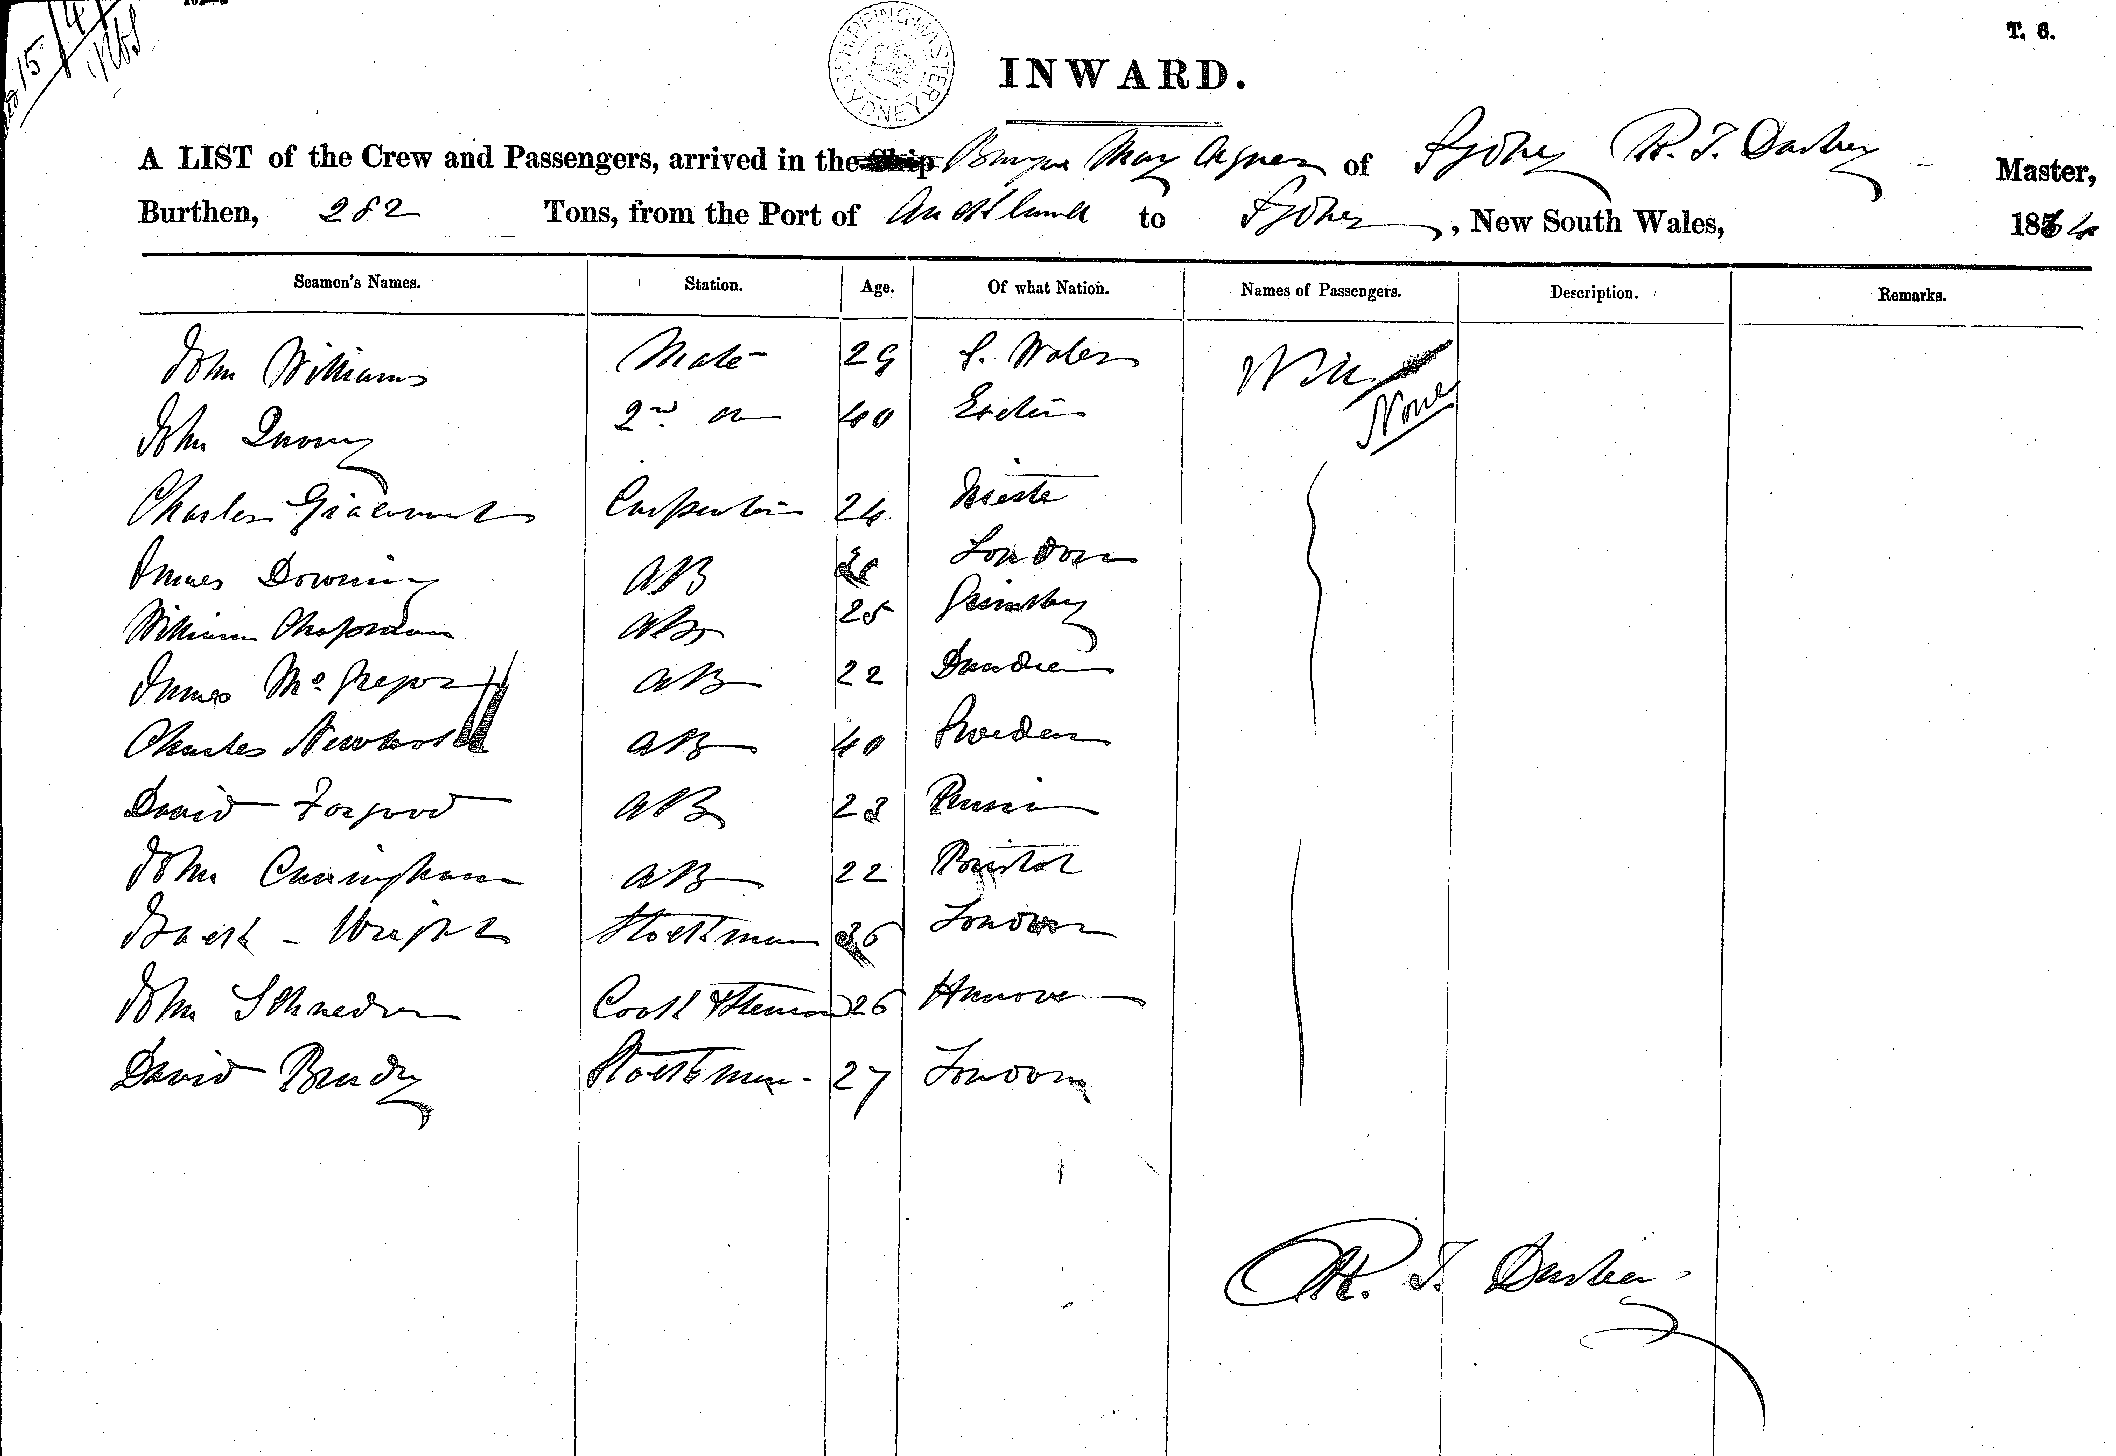 15/4
T. 6.
SHIPPING MASTER SYDNEY
INWARD.
A LIST of the Crew and Passengers, arrived in the Ship Barque May Agnes of Sydney R. T. Darley Master,
Burthen, 282 Tons, from the Port of Auckland to Sydney, New South Wales, 1864
Seamen's Names. Station. Age. Of what Nation. Names of Passengers. Description. Remarks.
John Williams Mate 29 S. Wales Nil None
John 2nd do 40 Exeter
Charles Carpenter 24 Trieste
James Downing AB London
William Chapman AB 25 Grimsby
James McGregor AB 22 Dundee
Charles AB 40 Sweden
David AB 23
John Cuningham AB 22 Bristol
Wright Stockman 36 London
John Cook & Steward 26 Hanover
David Brady Stockman 27 London
R. T. Darley